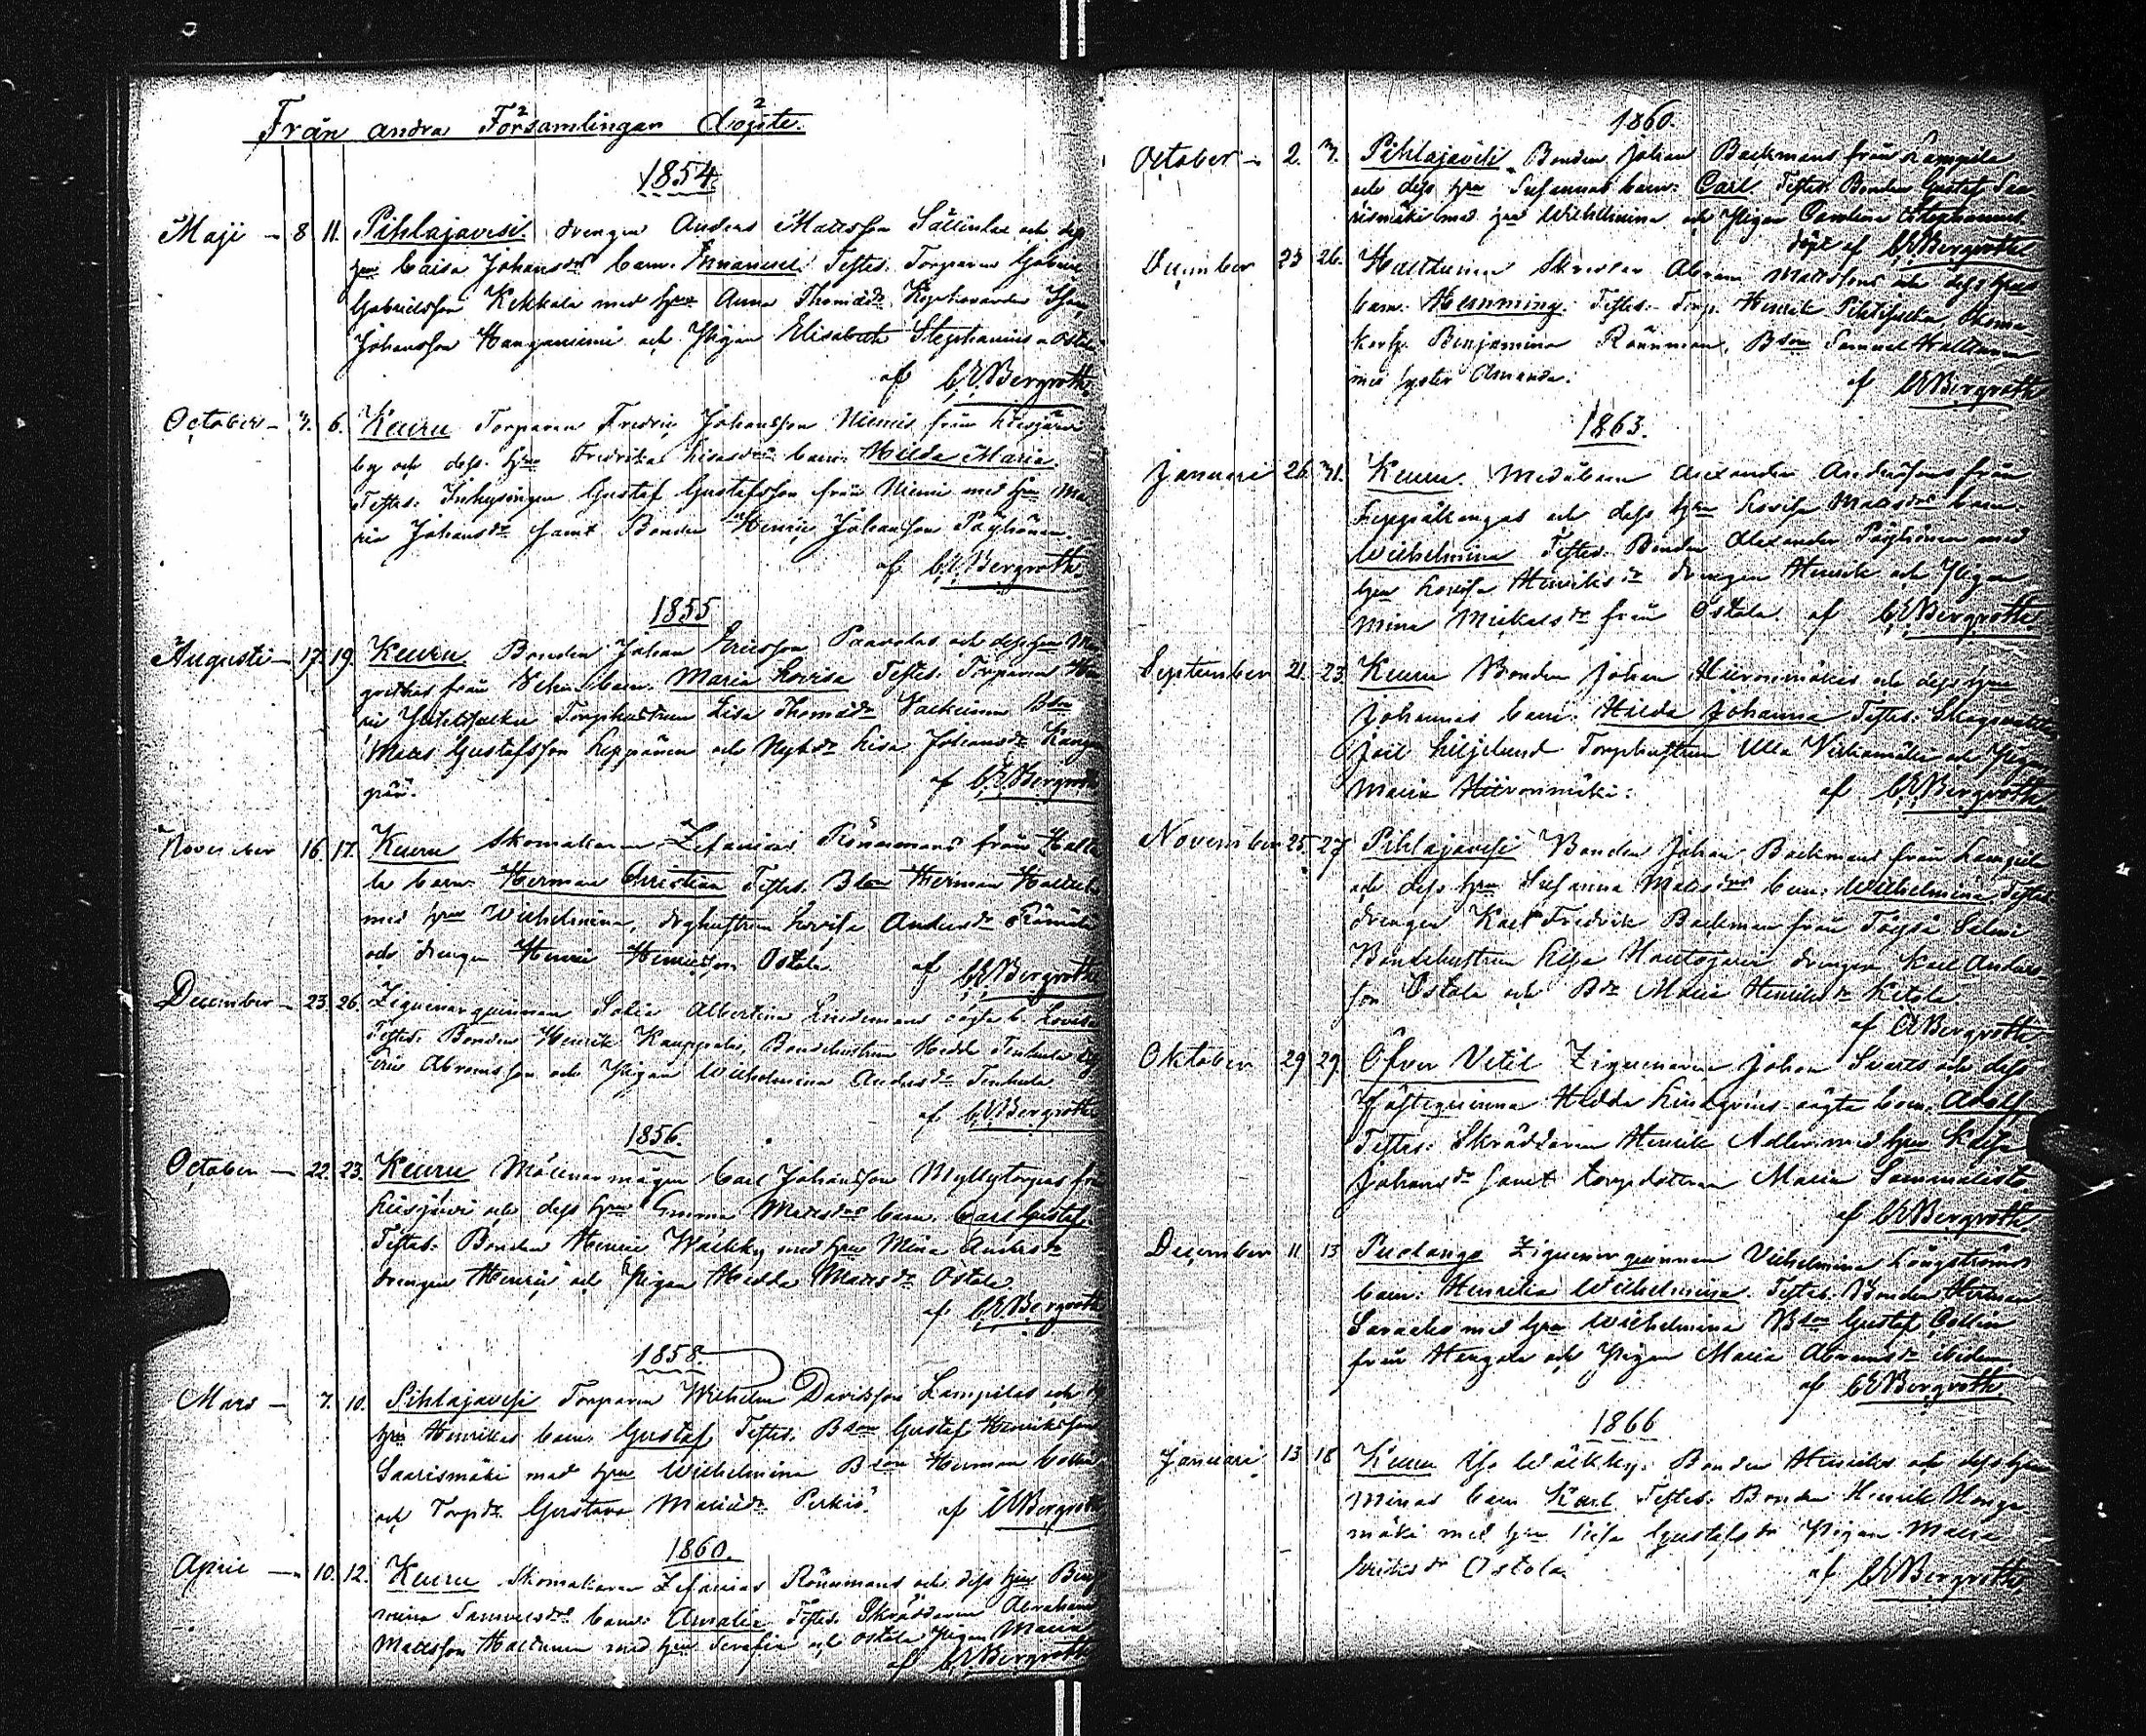 Från andra Församlingar döpte.
1854.
Maji – 8 11. Pihlajavesi. drengen Anders Mattsson Sällinlax och dess
hru Caisa Johansdrs barn. Emanuel Testes. Torparen Gabriel
Gabrielsson Kekkala med hru Anna Thomadr
Johansson Hanganiemi och Pigan Elisabeth Stephanus a Ostola
af C.E.Bergroth.
October – 3. 6. Keuru Torparen Fredric Johansson Niemis från Liesjärvi
by och dess hru Fredrika barn. Hilda Maria.
Testes. Inhysingen Gustaf Gustafsson från Niemi med hru Ma-
ria Johansdr samt Bonden Henric Johansson Päyhönen.
af C.E.Bergroth
1855
Augusti – 17. 19. Keuru Bonden Johan Ericsson Paavolas och dess hru Mar
grethas från barn. Maria Lovisa Testes. Torparen Hen
ric Torphustrun Lisa Thomadr Bson
Matts Gustafsson Leppänen och Lisa Johansdr Kangas
pää. af C.E.Bergroth
November 16. 17. Keuru Skomakaren Zefanias Rönnmans från Haltu
la barn. Herman Christian Testes. Bson Herman Haltula
med hru Wilhelmina, drghustrun Lovisa Andersdr
och drengen Henric Henricsson Ostola. af C.E.Bergroth
December – 23. 26. Ziguenarqvinnan Sofia Albertina Lindemans oägta b. Lovisa
Testes. Bonden Henrik Kauppala, Bondehustrun Hedda Tenhula
Eric Abramsson och Pigan Wilhelmina Andersdr Tenhula
af C.E.Bergroth
1856.
October – 22. 23. Keuru Möllnarmågen Carl Johansson Myllytorpas från
Liesjärvi och dess hru Emma Mattsdrs barn. Carl Gustaf.
Testes. Bonden Henric Wälkky med hru Mina Andersdr
drengen Henric och Pigan Hedda Mattsdr Ostola
af C.E.Bergroth
1858.
Mars – 7. 10. Pihlajavesi Torparen Wilhelm Davidsson Lampilas och d
hru Henrikas barn. Gustaf Testes. Bson Gustaf Henriksson
Saarismäki med hru Wilhelmina Bson Herman
och Torpdr Gustava Perkiö. af C.E.Bergroth
1860.
April – 10. 12. Keuru Skomakaren Zefanias Rönnmans och dess hru Benja
mina Samuelsdrs barn: Amalia Testes. Skräddaren Abraham
Mattsson Haltunen med hru Serafia och Ostola Pigan Maria
af C.E.Bergroth
1860.
October – 2. 7. Pihlajavesi Bonden Johan Backmans från Lampila
och dess hru Susannas barn: Carl Testes. Bonden Gustaf Saa-
rismäki med hru Wilhelmina och Pigan Carolina Stephanus
döpt af C.E.Bergroth
December 23 26. Haltunen Skredar Abram Mattssons och dess hrus
barn. Hemming. Testes. Torp. Henrik
Benjamina Rönnman, Bson Samuel Haltunen
med syster Amanda. af C.E.Bergroth
1863.
Januari 26. 31. Keuru. Alexander Anderssons från
Leppäkangas och dess hru Lovisa Mattsdrs barn.
Wilhelmina Testes. Bonden Alexander Päyhönen med
hru Lovisa Henriksdr drengen Henrik och Pigan
Mina Mickelsdr från Ostola. af C.E.Bergroth
September 21. 23. Keuru Bonden Johan Hiironmäkis och dess hru
Johannas barn. Hilda Johanna Testes. Skogsvakten
Joel Liljelund Torphustrun Ulla och Pigan
Maria Hiironmäki. af C.E.Bergroth
November 25. 27 Pihlajavesi Bonden Johan Backmans från Lampila
och dess hru Susanna Mattsdrs barn: Wilhelmina Testes.
drengen Karl Fredrik Backman från Töysä
Bondehustrun Lisa Hautojärvi drengen Karl Anders-
son Ostola och Bdr Maria Henriksdr Ketola
af C.E.Bergroth
Oktober 29 29 Öfver Vetil Ziguenaren Johan Svarts och dess
Fästeqvinna Hedda Lindqvists oägta barn. Adolf
Testes: Skräddaren Henrik Adler med hru Kaisa
Johansdr samt torpdottren Maria Sammalisto.
af C.E.Bergroth
December 11 13 Pudongo Ziguenarqvinnan Vilhelmina Långströms
barn: Henrika Wilhelmina. Testes. Bonden Herman
med hru Wilhelmina Bson Gustaf
från och Pigan Maria Abramsdr ibidem.
af C.E.Bergroth
1866
Januari 13 18 Keuru Wälkky. Bonden Henriks och dess hru
Minas barn Karl Testes. Bonden Henrik Honga-
mäki med hru Lisa Gustafsdr Pigan Maria
Ostola af C.E.Bergroth